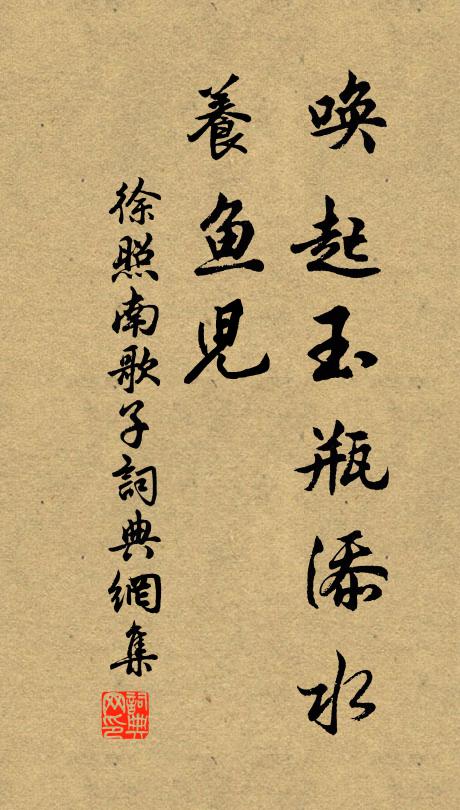 唤起玉瓶添水
養鱼児
徐照南歌子詞典網集
詞典网印